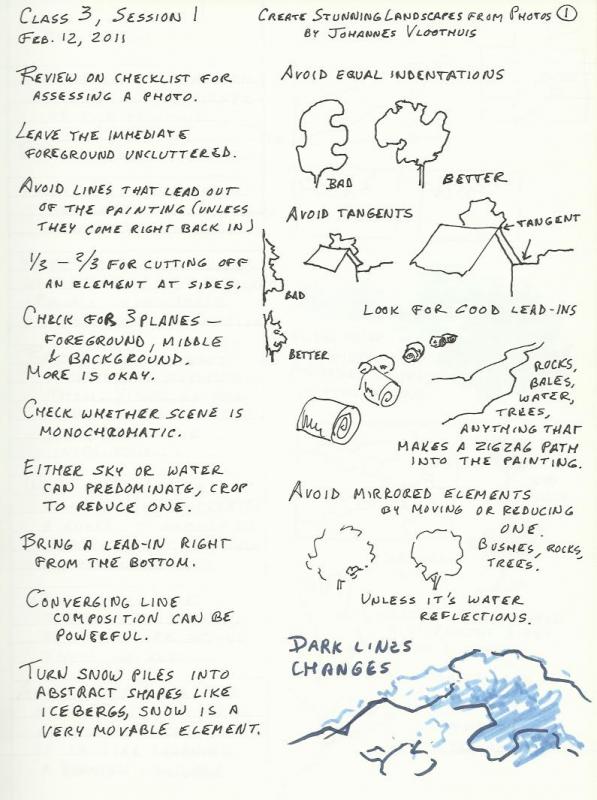 CLASS 3, SESSION 1
FEB. 12, 2011
CREATE STUNNING LANDSCAPES FROM PHOTOS 1
BY JOHANNES VLOOTHUIS
REVIEW ON CHECKLIST FOR
ASSESSING A PHOTO.
LEAVE THE IMMEDIATE
FOREGROUND UNCLUTTERED.
AVOID LINES THAT LEAD OUT
OF THE PAINTING (UNLESS
THEY COME RIGHT BACK IN)
1/3 – 2/3 FOR CUTTING OFF
AN ELEMENT AT SIDES.
CHECK FOR 3 PLANES –
FOREGROUND, MIDDLE
& BACKGROUND.
MORE IS OKAY.
CHECK WHETHER SCENE IS
MONOCHROMATIC.
EITHER SKY OR WATER
CAN PREDOMINATE, CROP
TO REDUCE ONE.
BRING A LEAD-IN RIGHT
FROM THE BOTTOM.
CONVERGING LINE
COMPOSITION CAN BE
POWERFUL.
TURN SNOW PILES INTO
ABSTRACT SHAPES LIKE
ICEBERGS, SNOW IS A
VERY MOVABLE ELEMENT.
AVOID EQUAL INDENTATIONS
BAD
BETTER
AVOID TANGENTS
TANGENT
BAD
BETTER
LOOK FOR GOOD LEAD-INS
ROCKS,
BALES,
WATER,
TREES,
ANYTHING THAT
MAKES A ZIGZAG PATH
INTO THE PAINTING.
AVOID MIRRORED ELEMENTS
BY MOVING OR REDUCING
ONE.
BUSHES, ROCKS,
TREES.
UNLESS IT'S WATER
REFLECTIONS.
DARK LINES
CHANGES